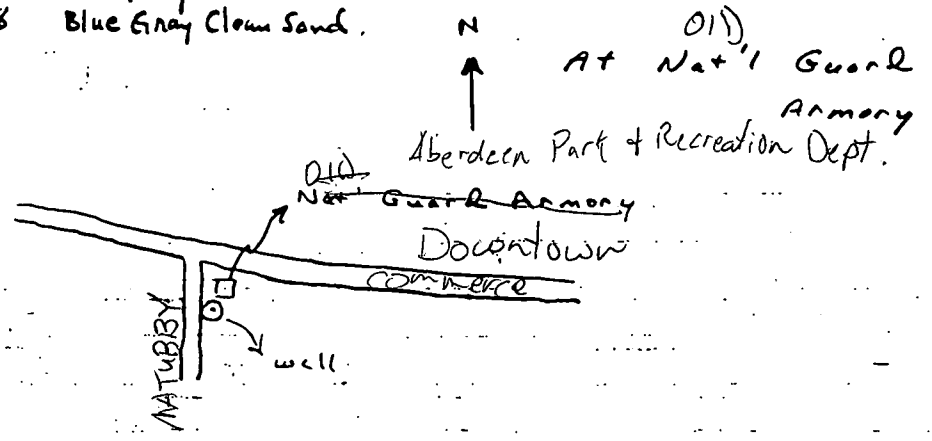 Blue Gray Clean Sand.
N
Old
At Nat'l Guard
Armory
Aberdeen Park & Recreation Dept.
Old
Nat' Guard Armory
Downtown
Commerce
MATUBBY
well